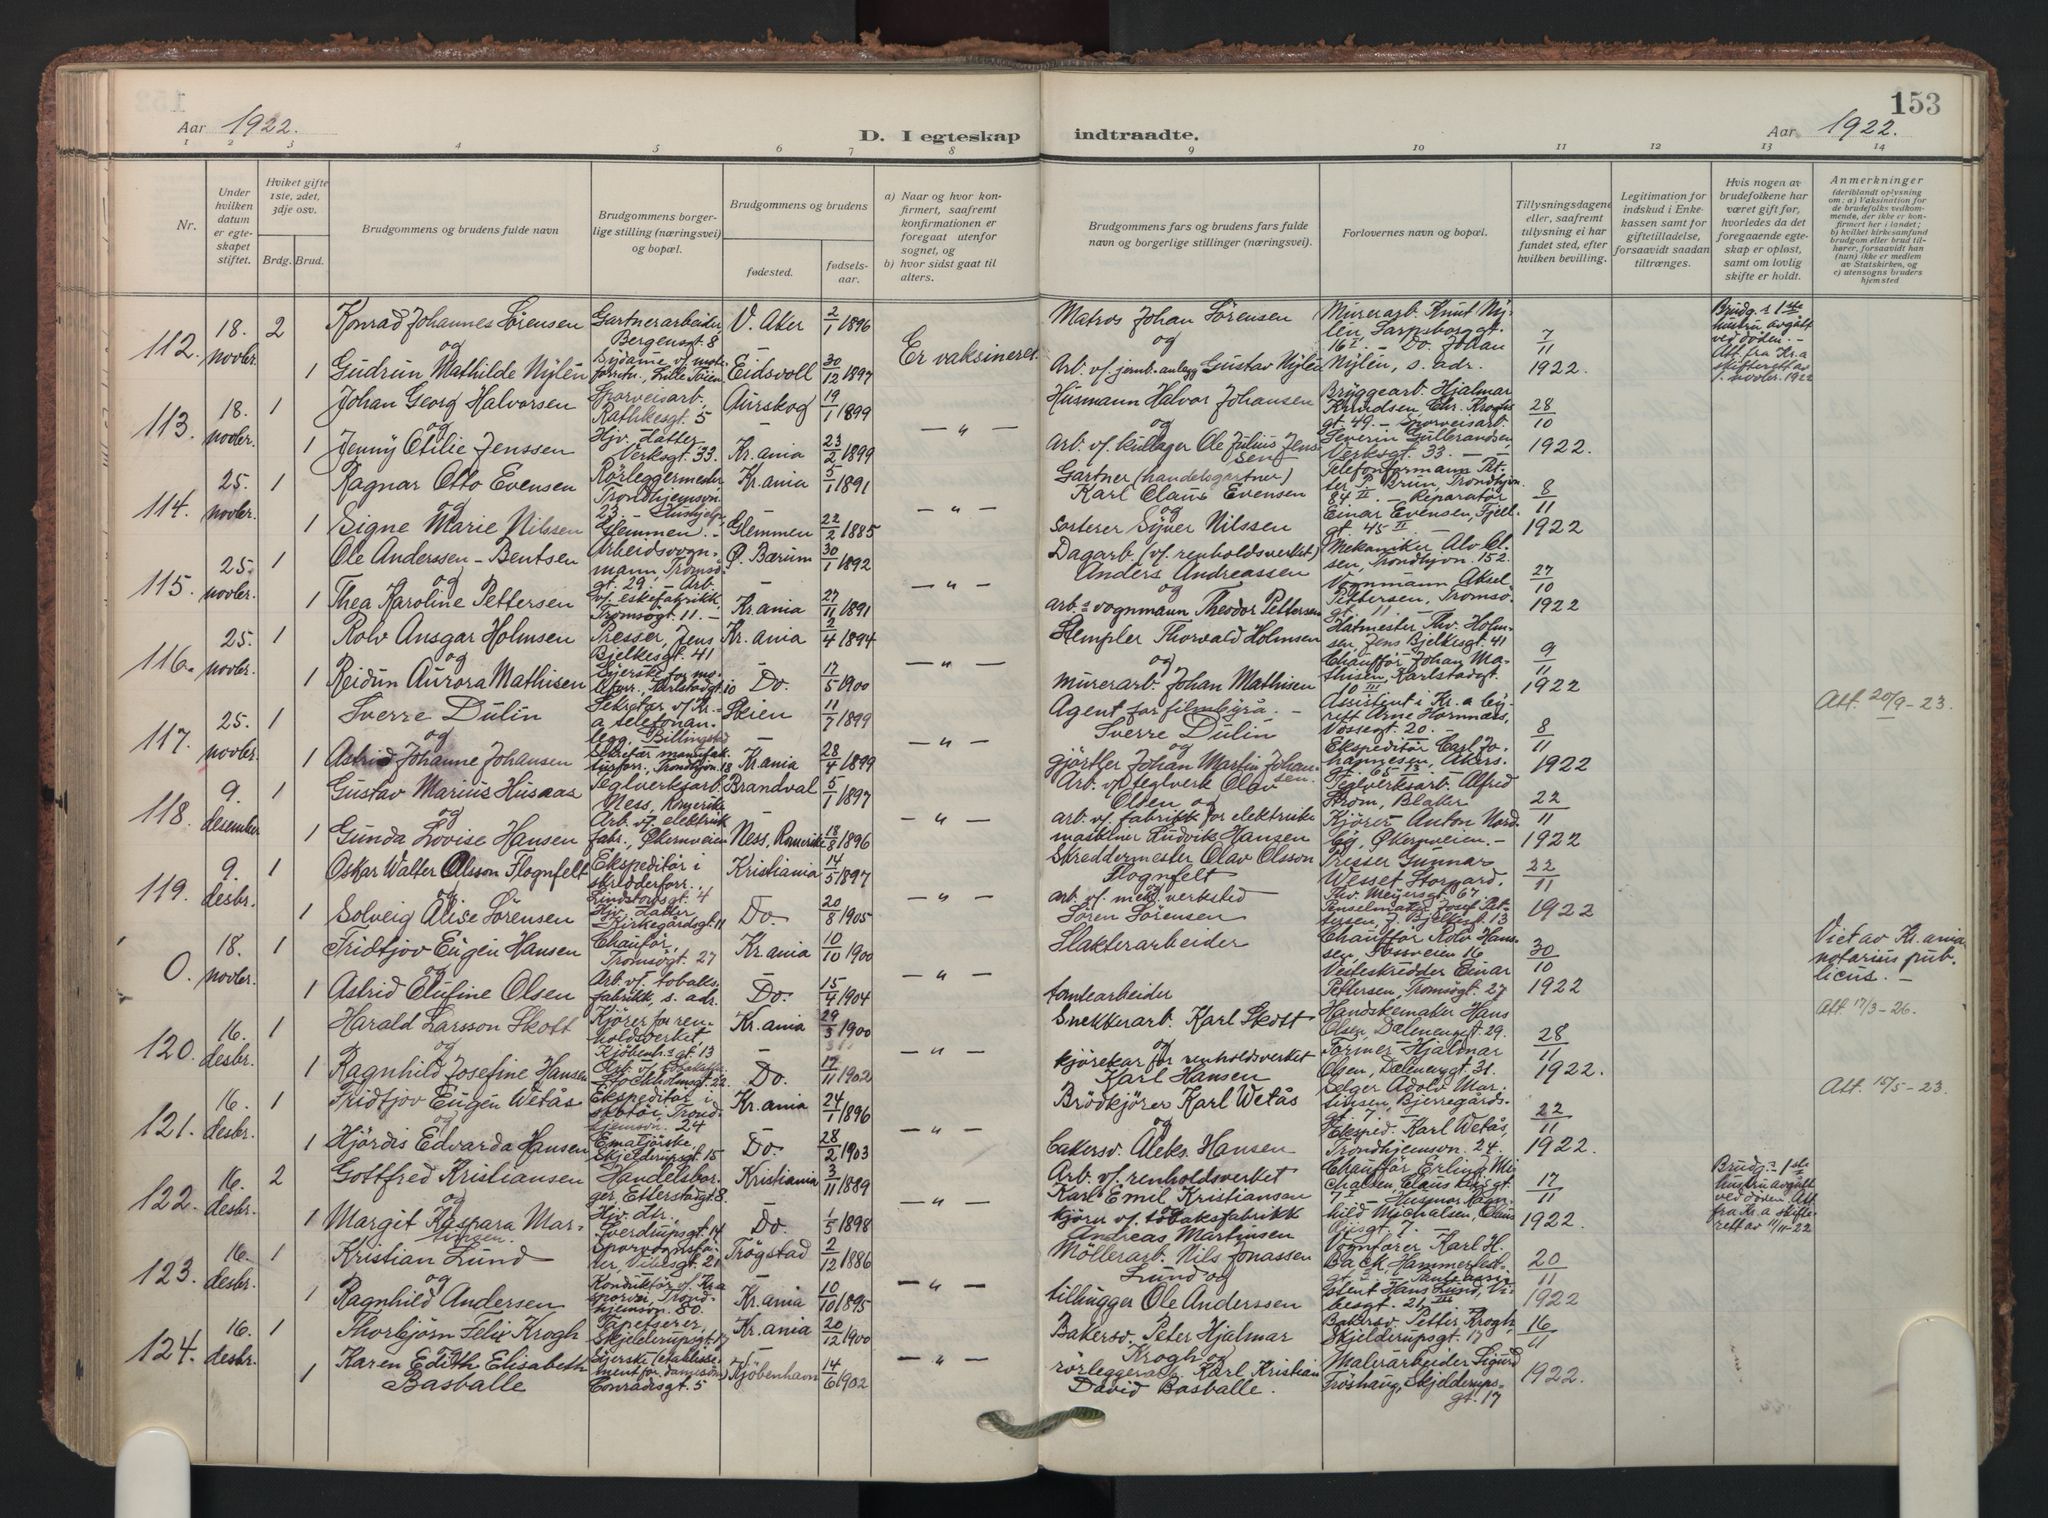 153
Aar 1922.
D. I egteskap indtraadte.
Aar 1922.
1 2 3 4 5 6 7 8 9 10 11 12 13 14
Nr.
Under hvilken datum er egteskapet stiftet.
Hviket gifte 1ste, 2det, 3dje osv.
Brdg. Brud.
Brudgommens og brudens fulde navn
Brudgommens borgerlige stilling (næringsvei) og bopæl.
Brudgommens og brudens
fødested.
fødselsaar.
a) Naar og hvor konfirmert, saafremt konfirmationen er foregaat utenfor sognet, og
b) hvor sidst gaat til alters.
Brudgommens fars og brudens fars fulde navn og borgerlige stillinger (næringsvei).
Forlovernes navn og bopæl.
Tillysningsdagene eller, saafremt tillysning ei har fundet sted, efter hvilken bevilling.
Legitimation for indskud i Enkekassen samt for giftetilladelse, forsaavidt saadan tiltrænges.
Hvis nogen av brudefolkene har været gift før, hvorledes da det foregaaende egteskap er opløst, samt om lovlig skifte er holdt.
Anmerkninger
(deriblandt oplysning om: a) Vaksination for de brudefolks vedkommende, der ikke er konfirmert her i landet; b) hvilket kirkesamfund brudgom eller brud tilhører, forsaavidt han (hun) ikke er medlem av Statskirken, og c) utensogns bruders hjemsted
112. 18. novbr. 2 Konrad Johannes Sörensen Gartnerarbeider, Bergensgt. 8 V. Aker 2/1 1896 Er vaksineret Matros Johan Sörensen Murerarb. Knut Nylén, Sarpsborggt. 16 I. – Do. Johan Nylén, s. adr. 7/11 1922. Brudg.s 1ste hustru avgått ved döden. – Att. fra Kr.a skifterett av 1. novbr. 1922
og
1 Gudrun Mathilde Nylén Eidsvoll 30/12 1897 Arb. v/ jernb.anlegg Gustav Nylén
113. 18. novbr. 1 Johan Georg Halvorsen Sporveisarb., Rathkesgt. 5 Aurskog 19/1 1899 – " – Husmann Halvor Johansen Bryggearb. Hjalmar Knudsen, Chr. Kroghs gt. 49. – Sporveisarb. Severin Gulbrandsen Verksgt. 33. 28/10 1922.
og
1 Jenny Otilie Jenssen Hjv. datter Verksgt. 33. Kr.ania 23/2 1899 Arb. v/ kullager Ole Julius Jenssen
114. 25. novbr. 1 Ragnar Otto Evensen Rörleggermester, Trondhjemsvn. 23. Kr.ania 5/1 1891 – " – Gartner (handelsgartner) Karl Claus Evensen Telefonformann Petter P. Brun, Trondhjvn. 84 II. – Reparatör Einar Evensen, Fjellgt. 45 II 8/11 1922
og
1 Signe Marie Nilssen Glemmen. – Glemmen 22/2 1885 Sorterer Syver Nilssen
115. 25. novbr. 1 Ole Anderssen-Bentsen Arbeidsvognmann, Tromsögt. 29. Ö. Bærum 30/1 1892 – " – Dagarb. (v/ renholdsverket) Anders Andreassen Mekaniker Alv Olsen, Trondhjvn. 152. Vognmann Aksel Pettersen, Tromsögt. 11. – 27/10 1922
og
1 Thea Karoline Pettersen Arb. v/ eskefabrikk, Tromsögt. 11. – Kr.ania 27/11 1891 arb.s vognmann Theodor Pettersen
116. 25. novbr. 1 Rolv Ansgar Holmsen Presser, Jens Bjelkesgt. 41 Kr.ania 2/4 1894 – " – Stempler Thorvald Holmsen Hatmester Thv. Holmsen, Jens Bjelkesgt. 41 Chaufför Johan Mathisen, Karlstadgt. 10 III 9/11 1922
og
1 Reidun Aurora Mathisen Karlstadgt. 10 Do. 17/5 1900 murerarb. Johan Mathisen
117. 25. novbr. 1 Sverre Dulin Sekretær v/ Kr.a telefonanlegg, Billingstad Skien 11/7 1899 – " – Agent for filmbyrå. – Sverre Dulin Assistent i Kr.a byrett Arne Hornnæs, Vossegt. 20. – Ekspeditör Carl Johannesen, Akersgt. 65 8/11 1922 Att. 20/9-23.
og
1 Astrid Johanne Johansen Trondhjvn. 18 Kr.ania 28/4 1899 gjörtler Johan Martin Johansen
118. 9. desember 1 Gustav Marius Husaas Teglverksarb. Ness, Romerike Brandval 5/1 1897 – " – Arb. v/ teglverk Olav Olsen og Teglverksarb. Alfred Ström, Blaker Kjörer Anton Nordby, Ökernveien. – 22/11 1922
og
1 Gunda Lovise Hansen Arb. v/ elektrisk fabr., Ökernveien Ness, Romerike 18/8 1896 arb. v/ fabrikk for elektriske maskiner Ludvik Hansen
119. 9. desbr. 1 Oskar Walter Olsson Flognfelt Ekspeditör i skredderforr., Lindstowsgt. 4 Kristiania 14/5 1897 – " – Skreddermester Olav Olsson Flognfelt Presser Gunnar Wesset Storgård, Thv. Meyersgt. 67 Penselmaker Josef Pettersen, J. Bjelkesgt. 13 22/11 1922
og
1 Solveig Alise Sörensen Hjv. datter Kirkegårdsgt. 11 Do. 20/8 1905 arb. v/ mek. verksted Sören Sörensen
0. 18. novbr. 1 Fridtjov Eugén Hansen Chauför, Tromsögt. 27 Kr.ania 10/10 1900 – " – Slakterarbeider Chauffór Rolv Hansen, Fossveien 16 Vesteskredder Einar Pettersen, Tromsögt. 27 30/10 1922 Viet av Kr.ania notarius publicus. –
og
1 Astrid Elufine Olsen Arb. v/ tobaksfabrikk, s. adr. Do. 15/4 1904 tomtearbeider
120. 16. desbr. 1 Harald Larsson Skött Kjörer for renholdsverket, Kjöbenh.s gt. 13 Kr.ania 29/3 1900 – " – Snekkerarb. Karl Skött Handskemaker Hans Olsen, Dælenenggt. 29. Former Hjalmar Olsen, Dælenenggt. 31. 28/11 1922. Att. 17/3-26.
og
1 Ragnhild Josefine Hansen Stockholmsgt. 22 Do. 17/11 1902 kjörekar for renholdsverket Karl Hansen
121. 16. desbr. 1 Fridtjov Eugén Wetås Ekspeditör i skotöi, Trondhjemsvn. 24 Kr.ania 24/1 1896 – " – Brödkjörer Karl Wetås Selger Adolv Martinsen, Bjerregårdsgt. 7. – Eksped. Karl Wetås, Trondhjemsvn. 24. 22/11 1922. Att. 15/5-23.
og
1 Hjördis Edvarda Hansen Skjelderupsgt. 15 Do. 28/2 1903 bakersv. Aleks. Hansen
122. 16. desbr. 2 Gottfred Kristiansen Handelsborger, Etterstadgt. 8 Kristiania 3/11 1889 – " – Arb. v/ renholdsverket Karl Emil Kristiansen Chaufför Erling Michalsen, Claus Riisgt. 7 I – Husmor Ragnhild Michalsen, Claus Riisgt. 7. 17/11 1922. Brudg.s 1ste hustru avgått ved döden. Att. fra Kr.a skifterett av 11/11-22
og
1 Margit Kaspara Martinsen. Hjv. dtr. Sverdrupsgt. 14 Do. 1/5 1898 kjörer v/ tobaksfabrikk Andreas Martinsen
123. 16. desbr. 1 Kristian Lund Sporvognsförer, Vibesgt. 21 Trögstad 2/12 1886 – " – Möllerarb. Nils Jonassen Lund og Vognförer Karl H. Back, Hammerfestgt. Hans Lund, Vibesgt. 21, III 20/11 1922
og
1 Ragnhild Andersen Konduktör v/ Kr.a sporvei, Trondhjemsvn. 80. Kr.ania 10/10 1895 tilhugger Ole Anderssen
124. 16. desbr. 1 Thorbjörn Felix Krogh Tapetserer, Skjelderupsgt. 17 Kr.ania 20/12 1900 – " – Bakersv. Peter Hjalmar Krogh og Bakersv. Petter Krogh, Skjelderupsgt. 17 Malerarbeider Sigurd Tröshaug, Skjelderupsgt. 17 16/11 1922.
og
1 Karen Edith Elisabeth Basballe Conradisgt. 5 Kjöbenhavn 14/6 1902 rörleggerarb. Karl Kristian David Basballe.